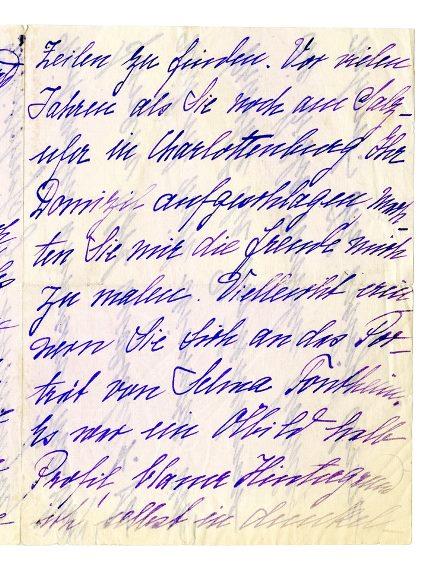 Zeilen zu finden. Vor vielen
Jahren als Sie noch am Salz-
ufer in Charlottenburg Ihr
Domizil aufgeschlagen, mach
ten Sie mir die Freude mich
zu malen. Vielleicht erin
nern Sie sich an das Por-
trät von Selma Fontheim.
Es war ein Ölbild halb
Profil, blauer Hintergrund
ich selbst in dunkel